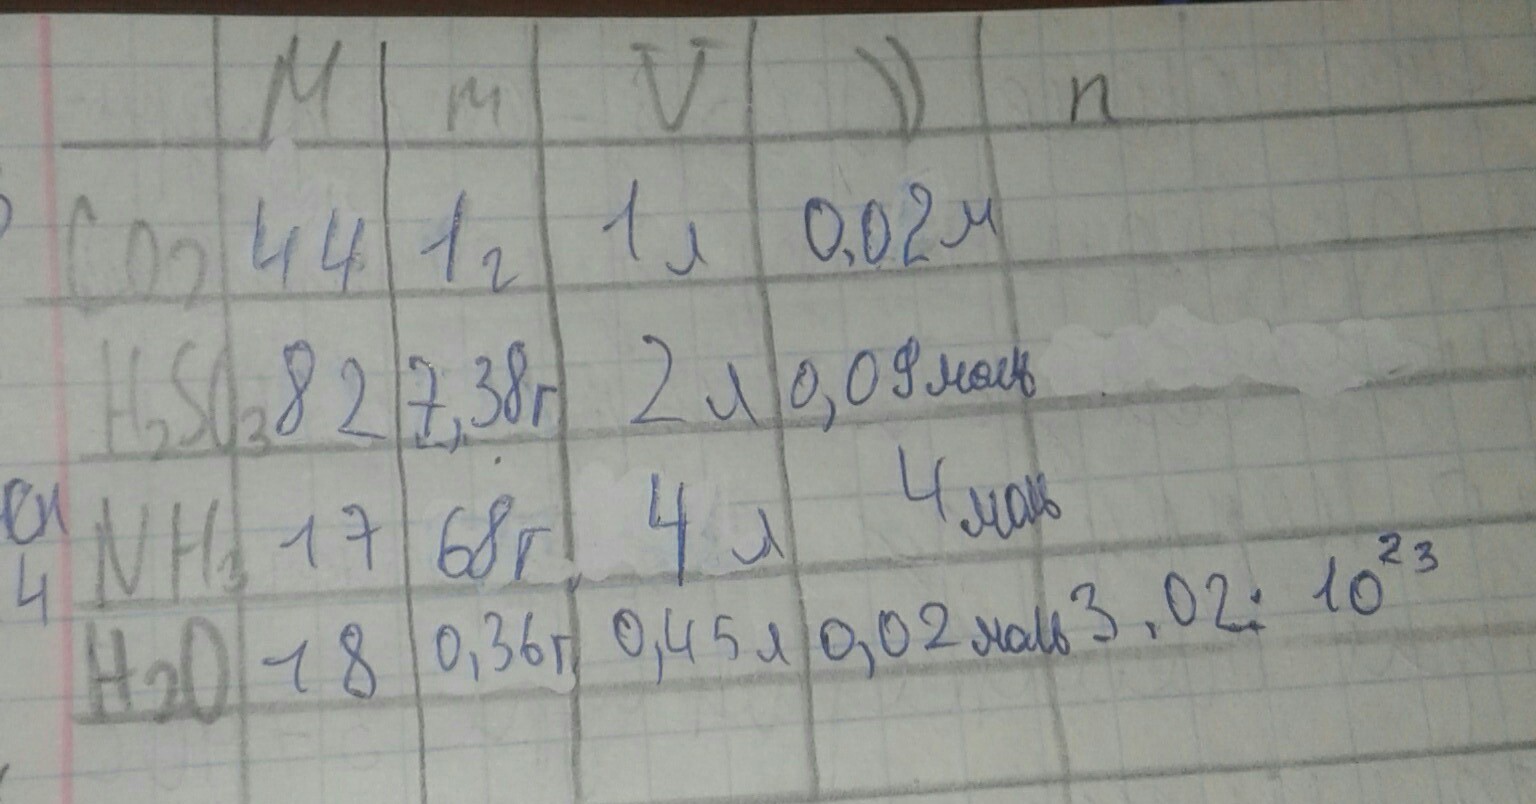 M m V ν n
CO2 44 1г 1л 0,02м
H2SO3 82 7,38г 2л 0,09моль
NH3 17 68г 4л 4моль
H2O 18 0,36г 0,45л 0,02моль 3,02: 10²³
4